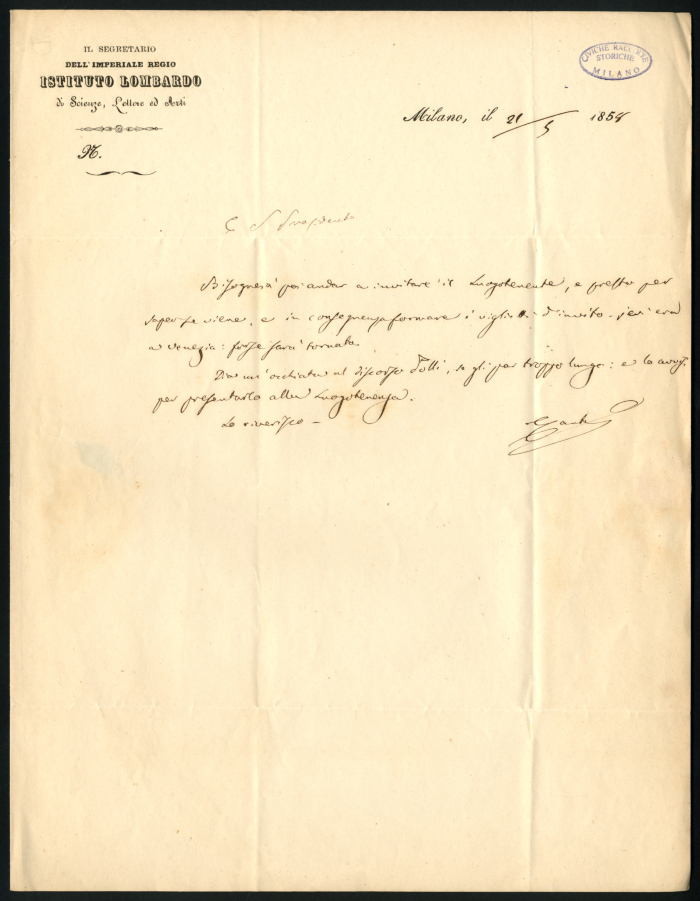 IL SEGRETARIO
DELL'IMPERIALE REGIO
ISTITUTO LOMBARDO
di Scienze, Lettere ed Arti
N.
CIVICHE RACCOLTE
STORICHE
MILANO
Milano, il 21/5 1854
S. Presidente
Bisognerà poi andar a invitare il Luogotenente, e presto per
saper se viene, e in conseguenza formare i viglietti d'invito. Jeri era
a Venezia: forse sarà tornato.
Dia un'occhiata al discorso, se gli par troppo lungo: e lo
per presentarlo alla Luogotenenza.
La riverisco -